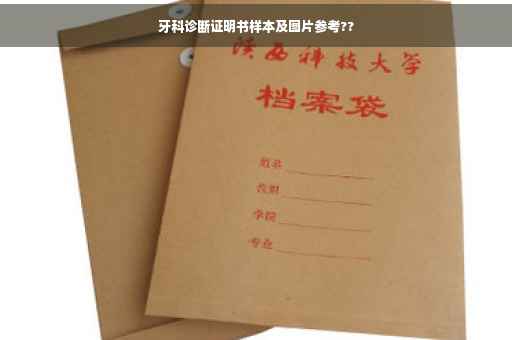 牙科诊断证明书样本及图片参考??
陕西科技大学
档案袋
姓名
学院
专业